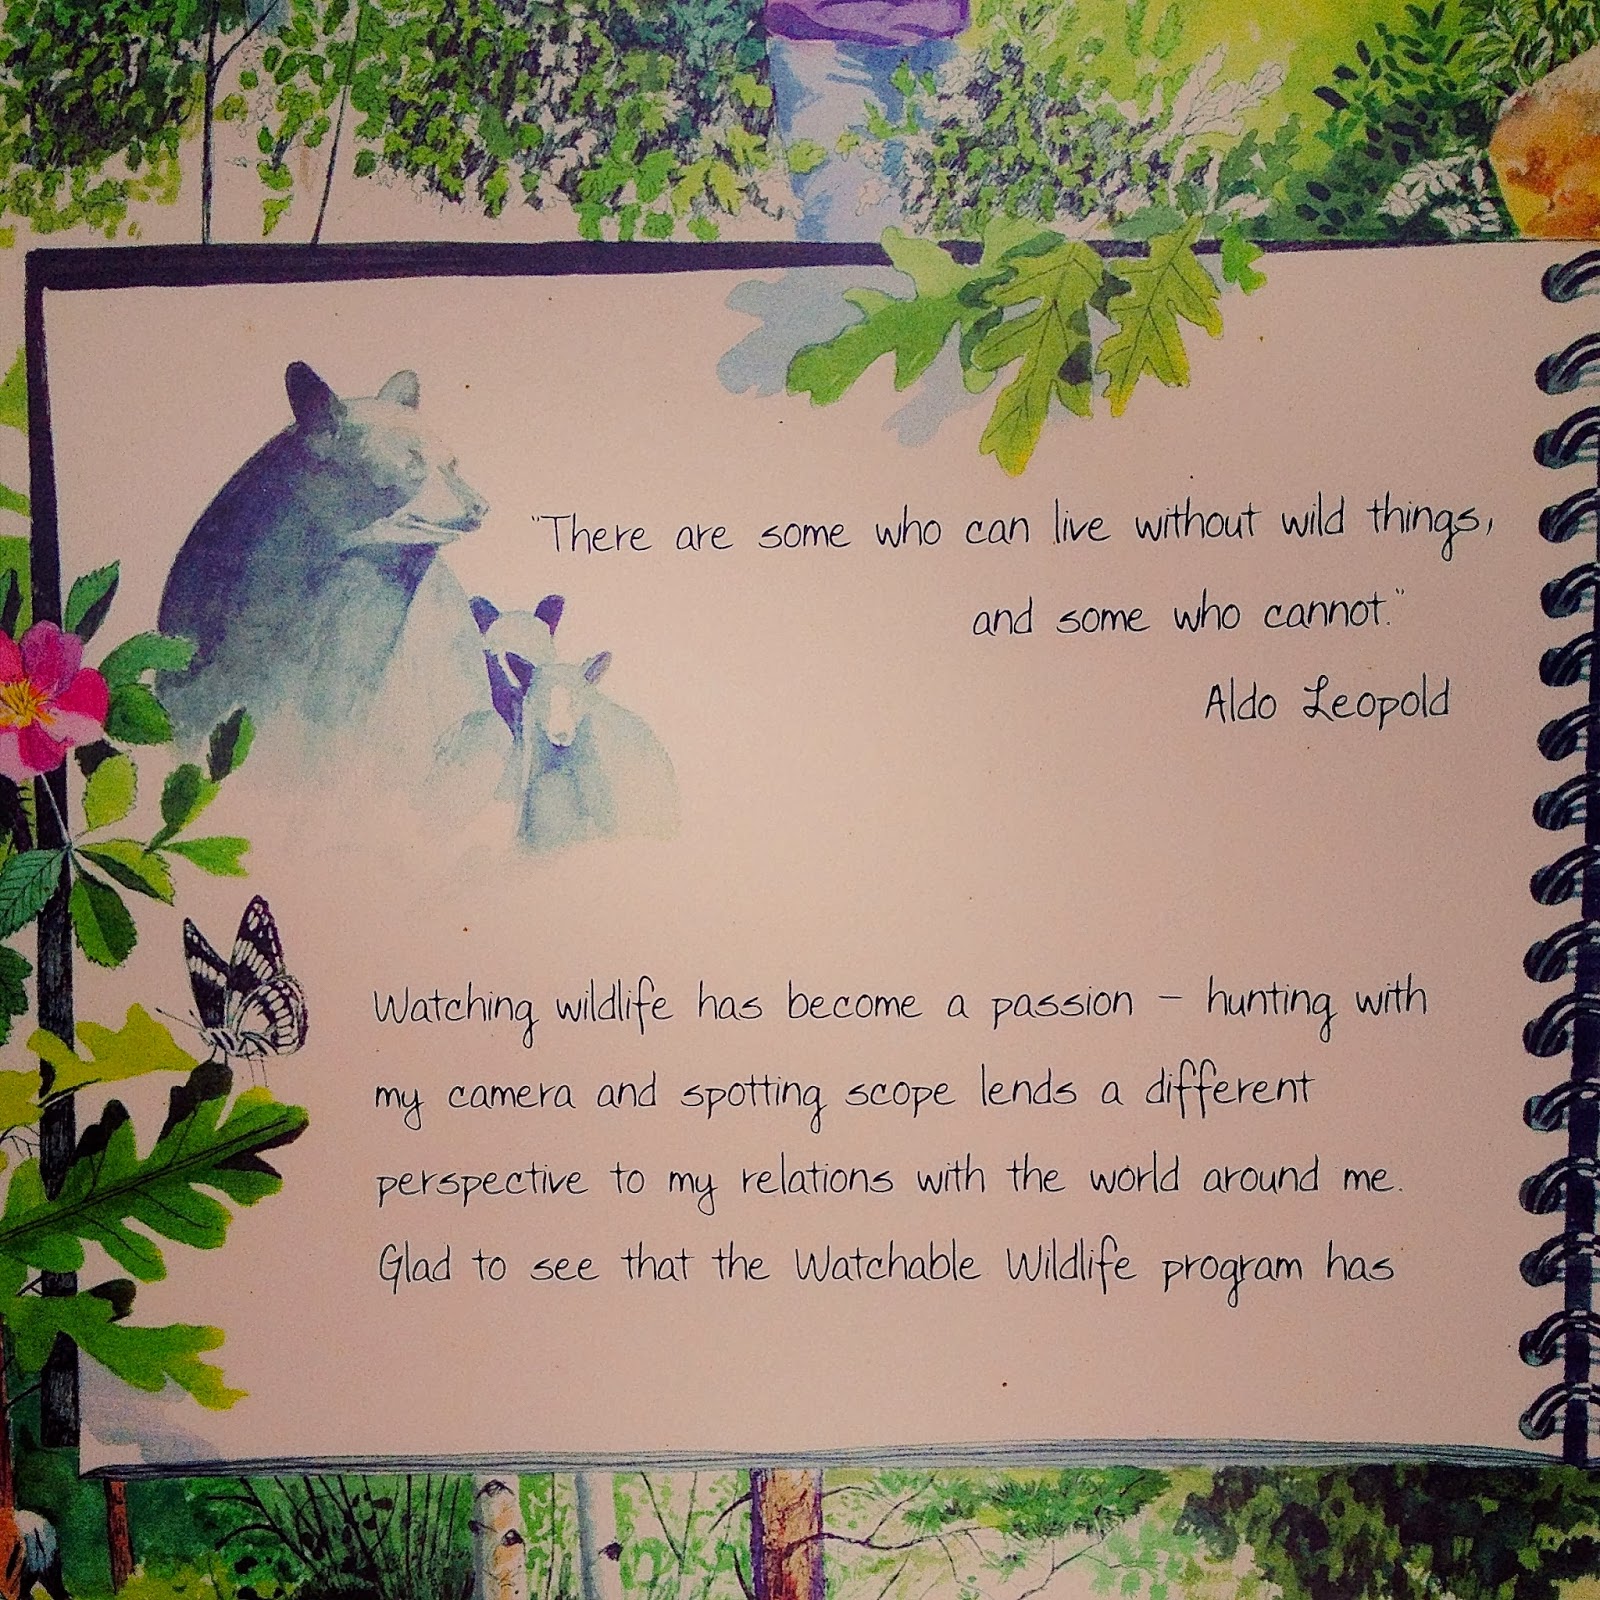 "There are some who can live without wild things,
and some who cannot."
Aldo Leopold
Watching wildlife has become a passion – hunting with
my camera and spotting scope lends a different
perspective to my relations with the world around me.
Glad to see that the Watchable Wildlife program has